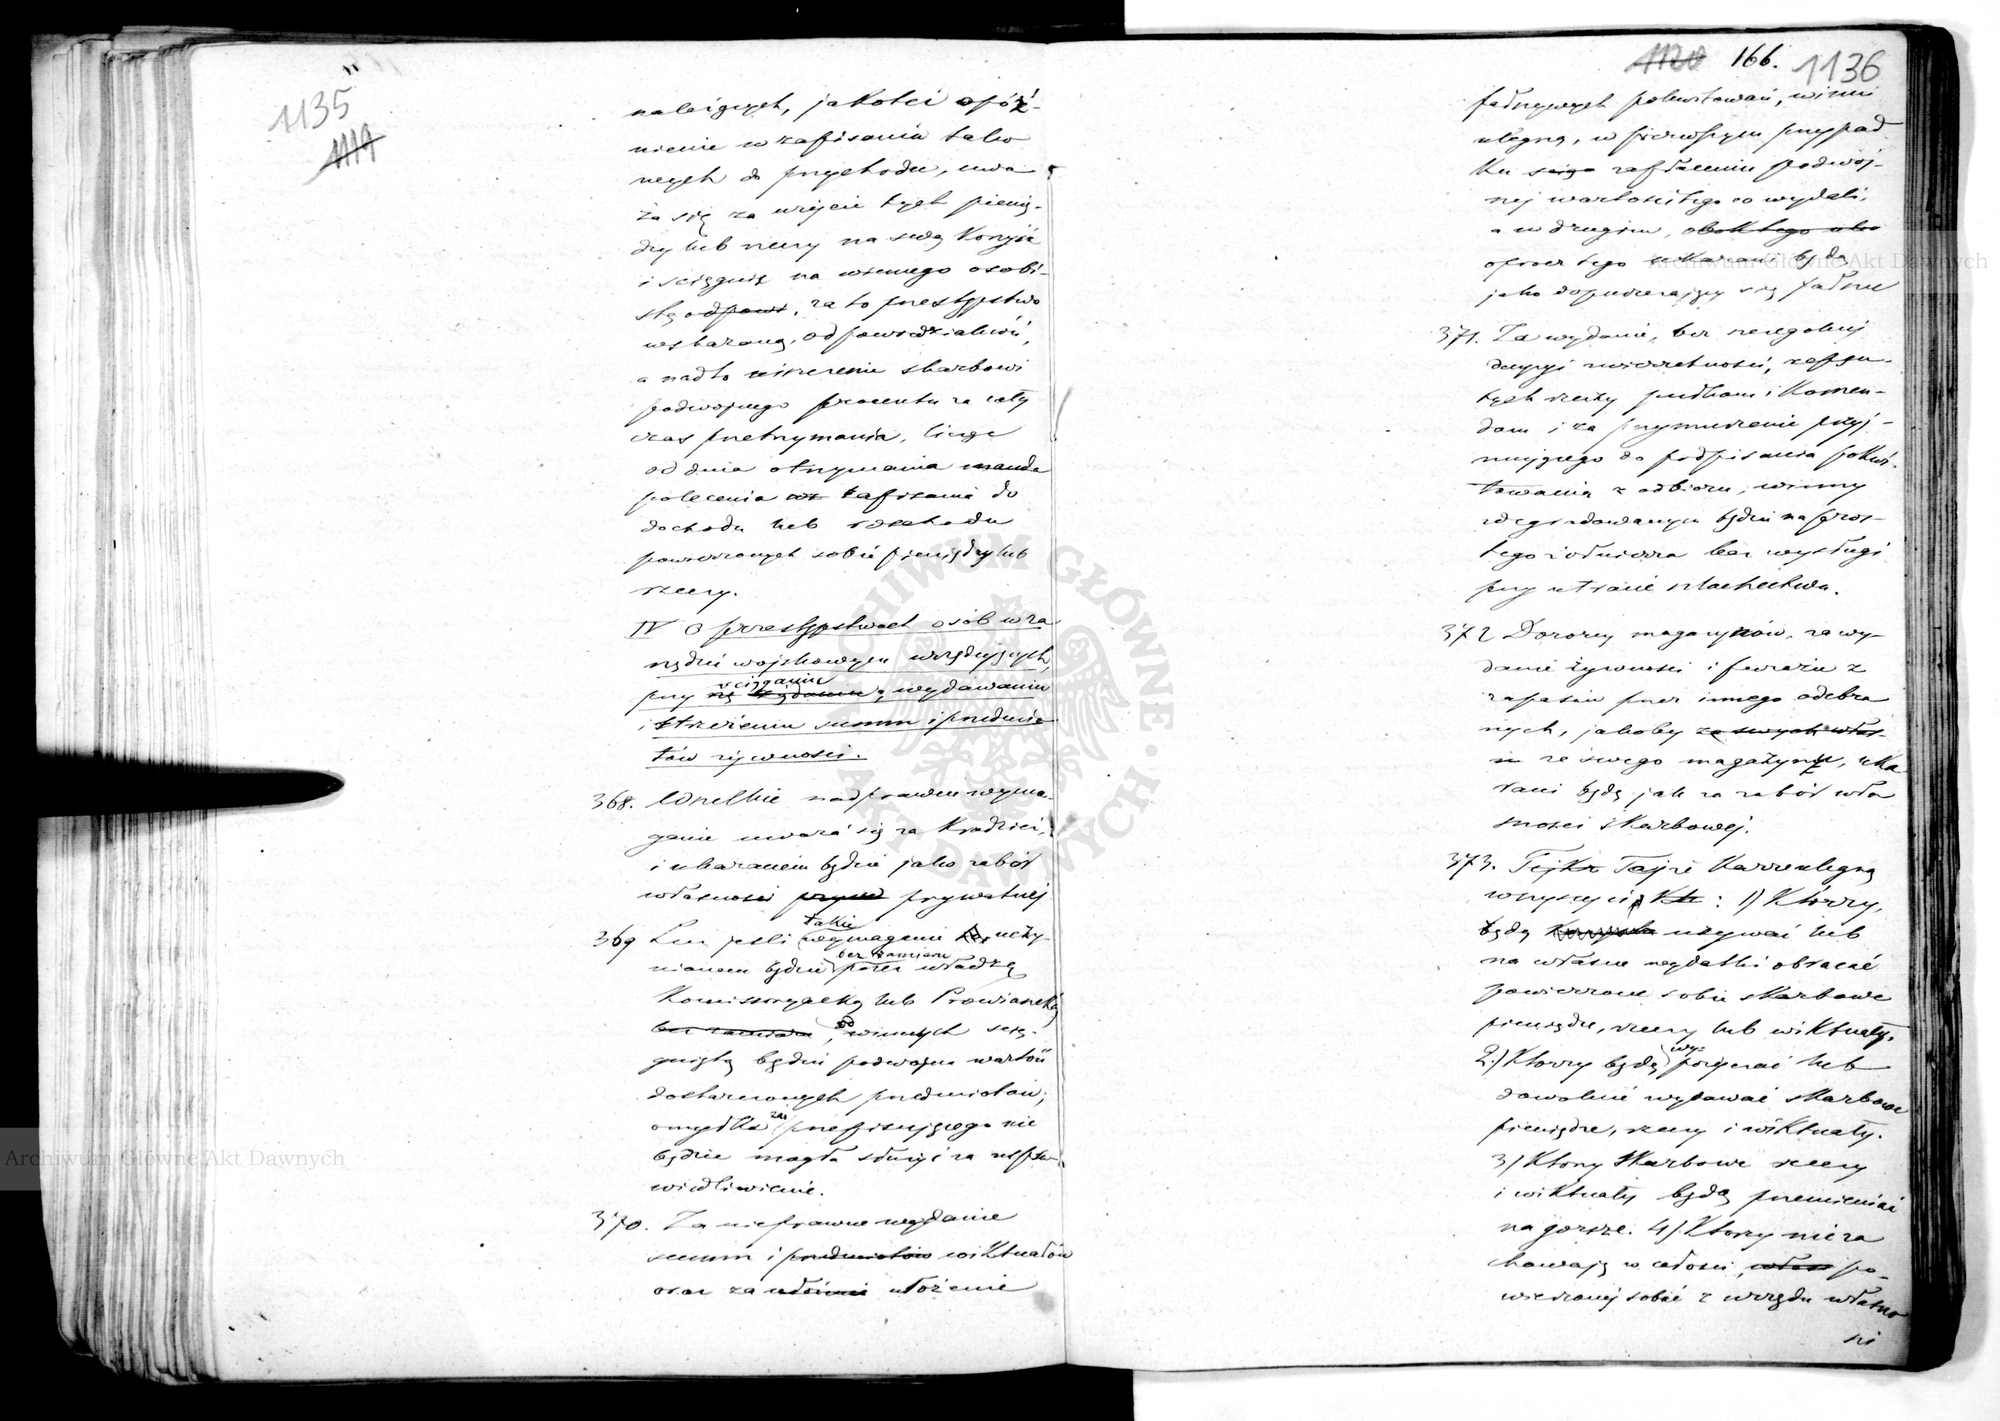 1135
1119
należących, jakoteż opóź-
nienie w zapisaniu tako
wych do przychodu, uwa
ża się za użycie tych pienię-
dzy lub rzeczy na swą korzyść
i ściągnie na winnego osobi-
stą odpowi, za to przestępstwo
wskazaną, odpowiedzialność,
a nadto uiszczenie skarbowi
podwójnego procentu za cały
czas przetrzymania, licząc
od dnia otrzymania
polecenia zapisania do
dochodu lub rozchodu
powierzonych sobie pieniędzy lub
rzeczy.
IV O przestępstwach osób w za
rządzie wojskowym urzędujących,
przy ściąganiu, wydawaniu
i strzeżeniu summ i przedmio
tów żywności.
368. Wszelkie nadprawne wyma-
ganie uważa się za kradzież,
i ukaranem będzie jako zabór
własności prywatnej
369 Lecz jeśli takie wymaganie uczy-
nionem będzie bez zamiaru przez władzę
Kommissoryacką lub Prowiancką
bez zamiaru, od winnych ścią-
gniętą będzie podwójna wartość
dostarczonych przedmiotów;
omyłka zaś przepisującego nie
będzie mogła służyć za uspra-
wiedliwienie.
370. Za nieprawne wydanie
summ i przedmiotów wiktuałów
oraz za ułożenie
1120 166. 1136
fałszywych pokwitowań, winni
ulegną, w pierwszym przypad
ku zapłaceniu podwój-
nej wartości tego co wydali,
a w drugim, obok tego albo
oprócz tego ukarani będą
jako dopuszczający się fałszu
371. Za wydanie, bez szczególnej
decyzji zwierzchności, zepsu-
tych rzeczy pułkom i Komen-
dom i za przymuszenie przyj-
mującego do podpisania pokwi-
towania z odbioru, winny
zdegradowanym będzie na pros-
tego żołnierza bez wysługi
przy utracie szlachectwa.
372 Dozorcy magazynów, za wy-
danie żywności i furażu z
zapasów przez innego odebra
nych, jakoby ze swych włas-
ze swego magazynu, uka
rani będą jak za zabór wła
sności skarbowej.
373. Tejże karze ulegną
wszyscy ci: 1) Którzy,
będą używać lub
na własne wydatki obracać
powierzone sobie skarbowe
pieniądze, rzeczy lub wiktuały.
2) Którzy będą wy- pożyczać lub
dowolnie wydawać skarbowe
pieniądze, rzeczy i wiktuały.
3) Którzy skarbowe rzeczy
i wiktuały będą przemieniać
na gorsze. 4) Którzy nie za
chowają w całości, po-
wierzonej sobie z urzędu własno
ści
Archiwum Główne Akt Dawnych
ARCHIWUM GŁÓWNE AKT DAWNYCH
Archiwum Główne Akt Dawnych